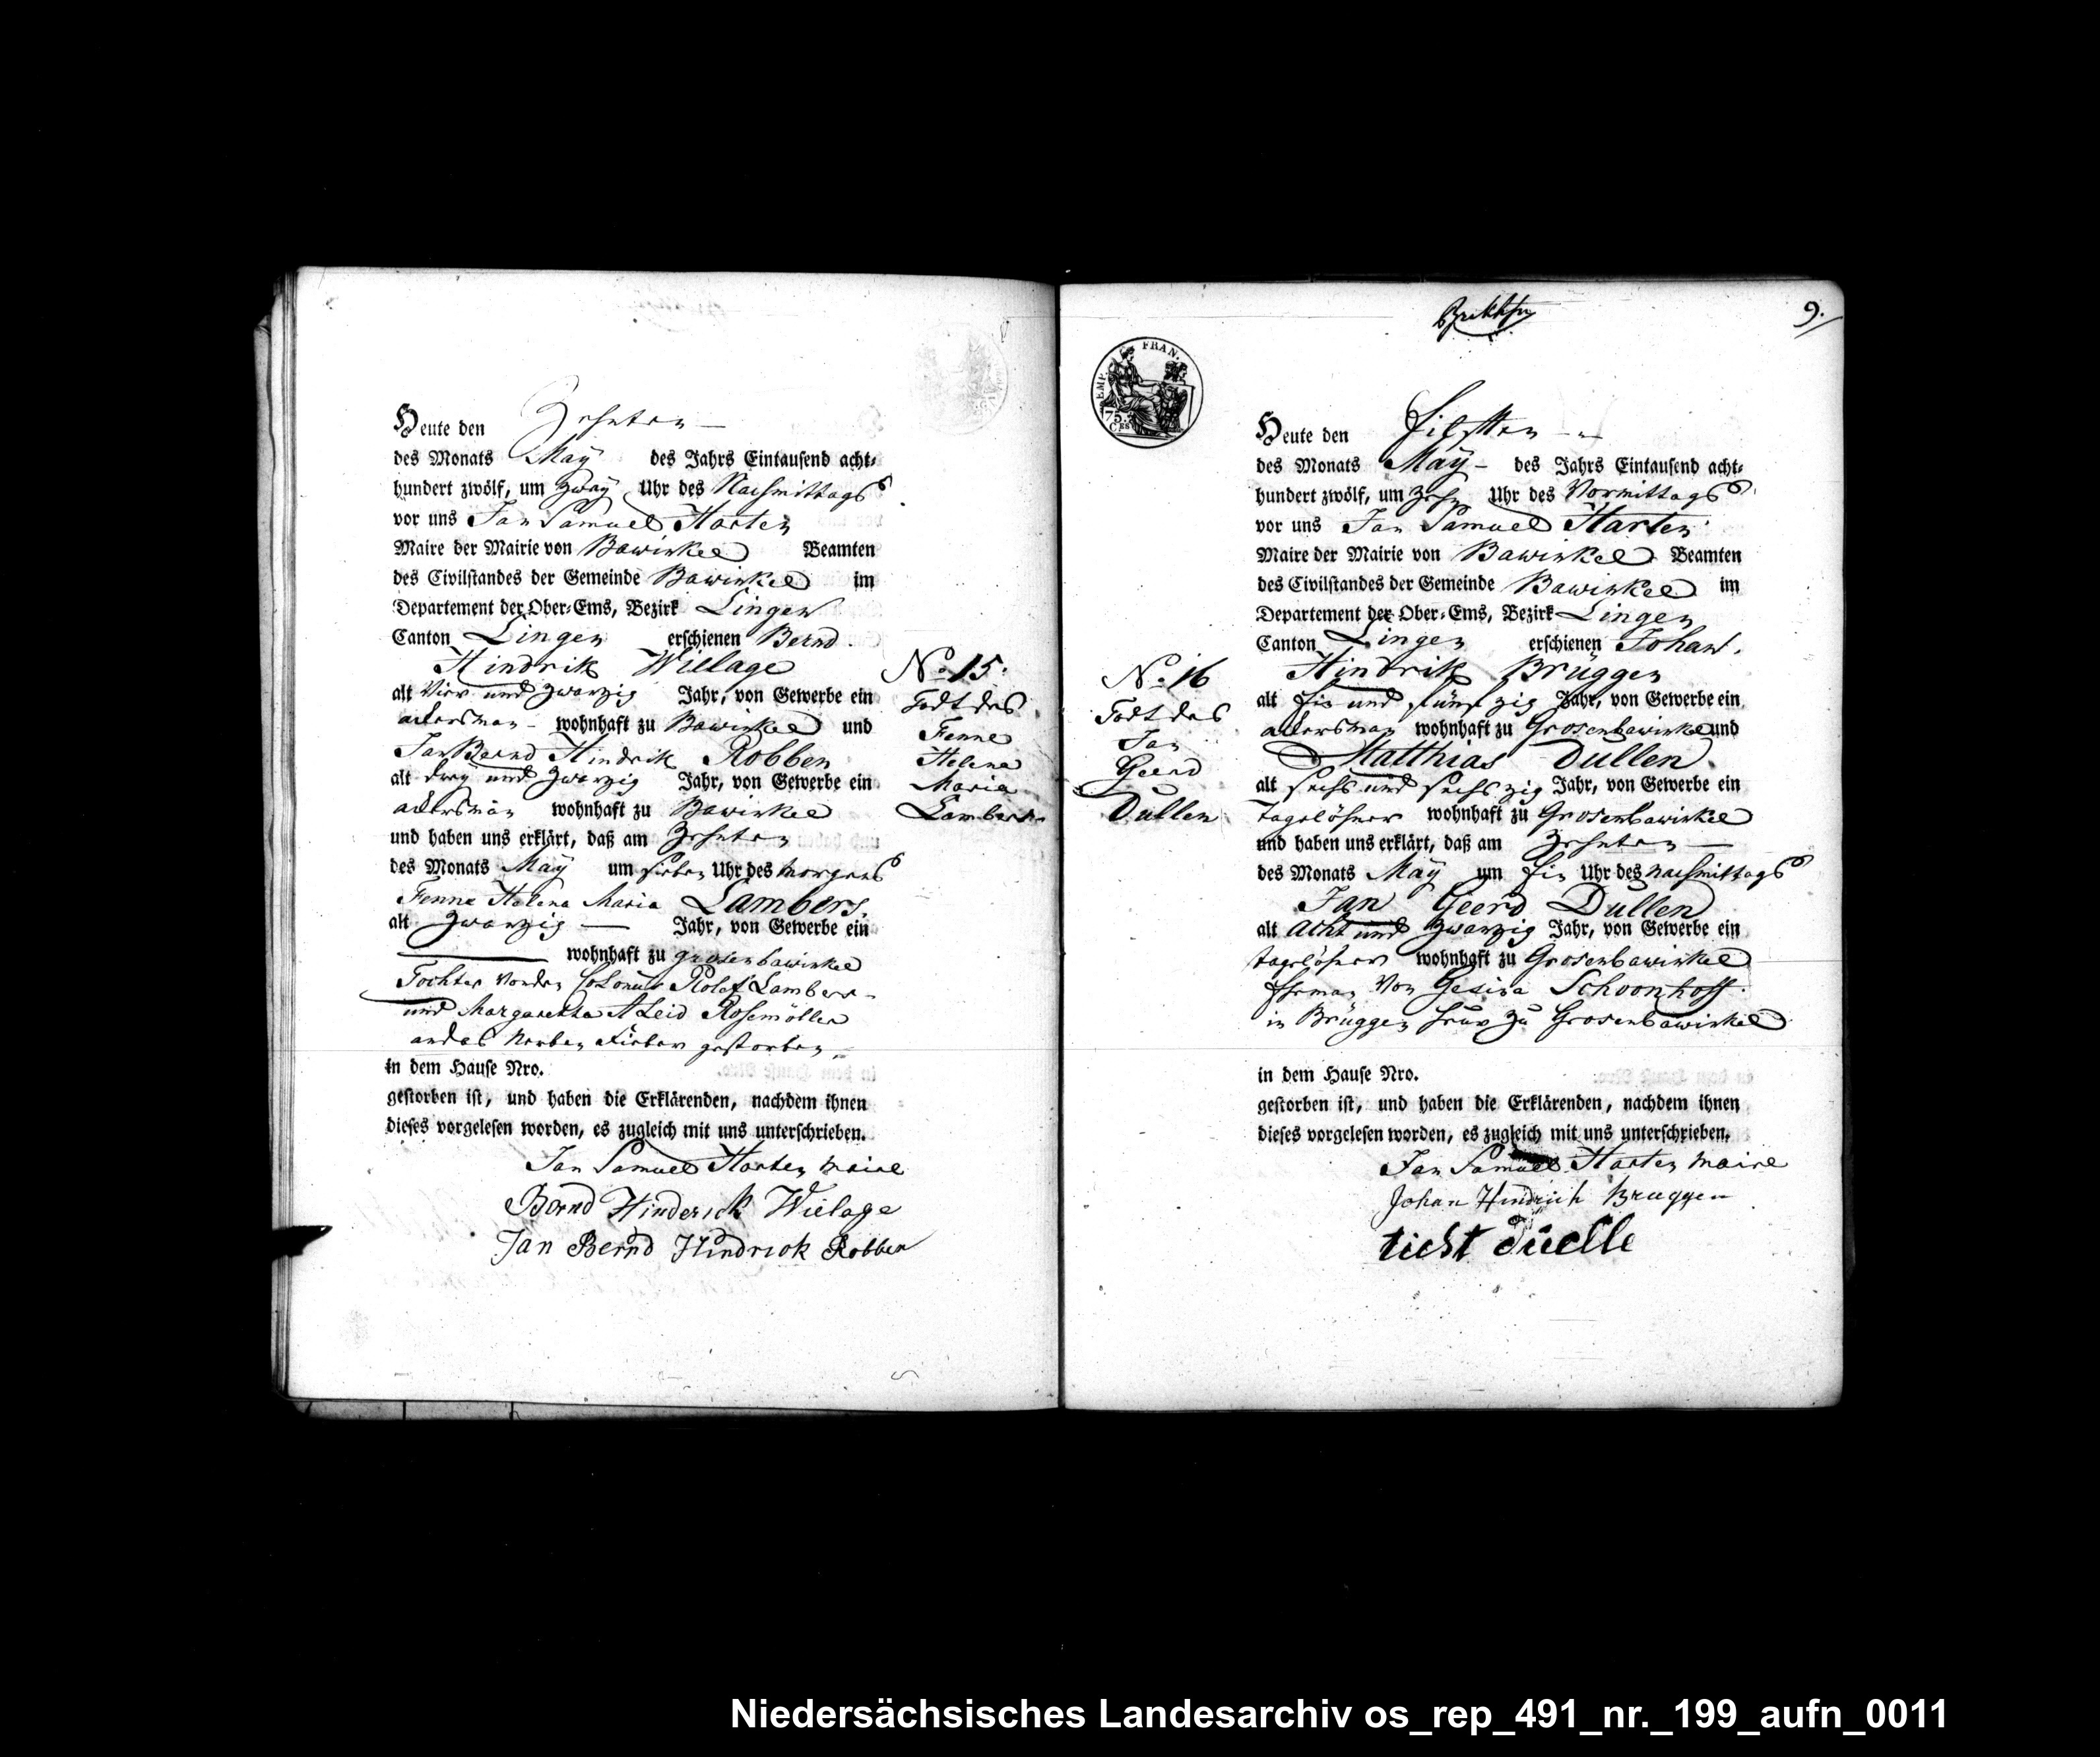 Heute den Zehnten
des Monats May des Jahrs Eintausend acht-
hundert zwölf, um zway Uhr des Nachmittags
vor uns Jan Samuel Harten
Maire der Mairie von Bawinkel Beamten
des Civilstandes der Gemeinde Bawinkel im
Departement der Ober-Ems, Bezirk Lingen
Canton Lingen erschienen Bernd
Hindrik Wielage
alt Vier und zwanzig Jahr, von Gewerbe ein
ackersman wohnhaft zu Bawinkel und
Jan Bernd Hindrik Robben
alt drey und zwanzig Jahr, von Gewerbe ein
ackersman wohnhaft zu Bawinkel
und haben uns erklärt, daß am Zehnten
des Monats May um sieben Uhr des morgens
Fenne Helena Maria Lambers
alt zwanzig Jahr, von Gewerbe ein
wohnhaft zu grosenbawinkel
Tochter von den Colonus Rolef Lambers
und Margaretha Aleid Rosemöller
an das Nerben fieber gestorben
in dem Hause Nro.
gestorben ist, und haben die Erklärenden, nachdem ihnen
dieses vorgelesen worden, es zugleich mit uns unterschrieben.
Jan Samuel Harten maire
Bernd Hinderick Wielage
Jan Bernd Hindrick Robben
No 15.
Todt des
Fenne
Helena
Maria
Lambers
9.
EMP. FRAN.
75.
CES
Heute den Eilften
des Monats May des Jahrs Eintausend acht-
hundert zwölf, um zehn Uhr des Vormittags
vor uns Jan Samuel Harten
Maire der Mairie von Bawinkel Beamten
des Civilstandes der Gemeinde Bawinkel im
Departement der Ober-Ems, Bezirk Lingen
Canton Lingen erschienen Johan
Hindrik Brüggen
alt Ein und fünfzig Jahr, von Gewerbe ein
ackersman wohnhaft zu Grosenbawinkel und
Matthias Dullen
alt sechs und sechszig Jahr, von Gewerbe ein
Tagelöhner wohnhaft zu Grosenbawinkel
und haben uns erklärt, daß am Zehnten
des Monats May um Ein Uhr des nachmittags
Jan Geerd Dullen
alt Acht und zwanzig Jahr, von Gewerbe ein
tagelöhner wohnhaft zu Grosenbawinkel
Ehman Von Gesina Schoonhoff
in Brüggen heuer zu Grosenbawinkel
in dem Hause Nro.
gestorben ist, und haben die Erklärenden, nachdem ihnen
dieses vorgelesen worden, es zugleich mit uns unterschrieben.
Jan Samuel Harten maire
Johan Hindrich Bruggen
ticht düelle
No 16
Todt des
Jan
Geerd
Dullen
Niedersächsisches Landesarchiv os_rep_491_nr._199_aufn_0011